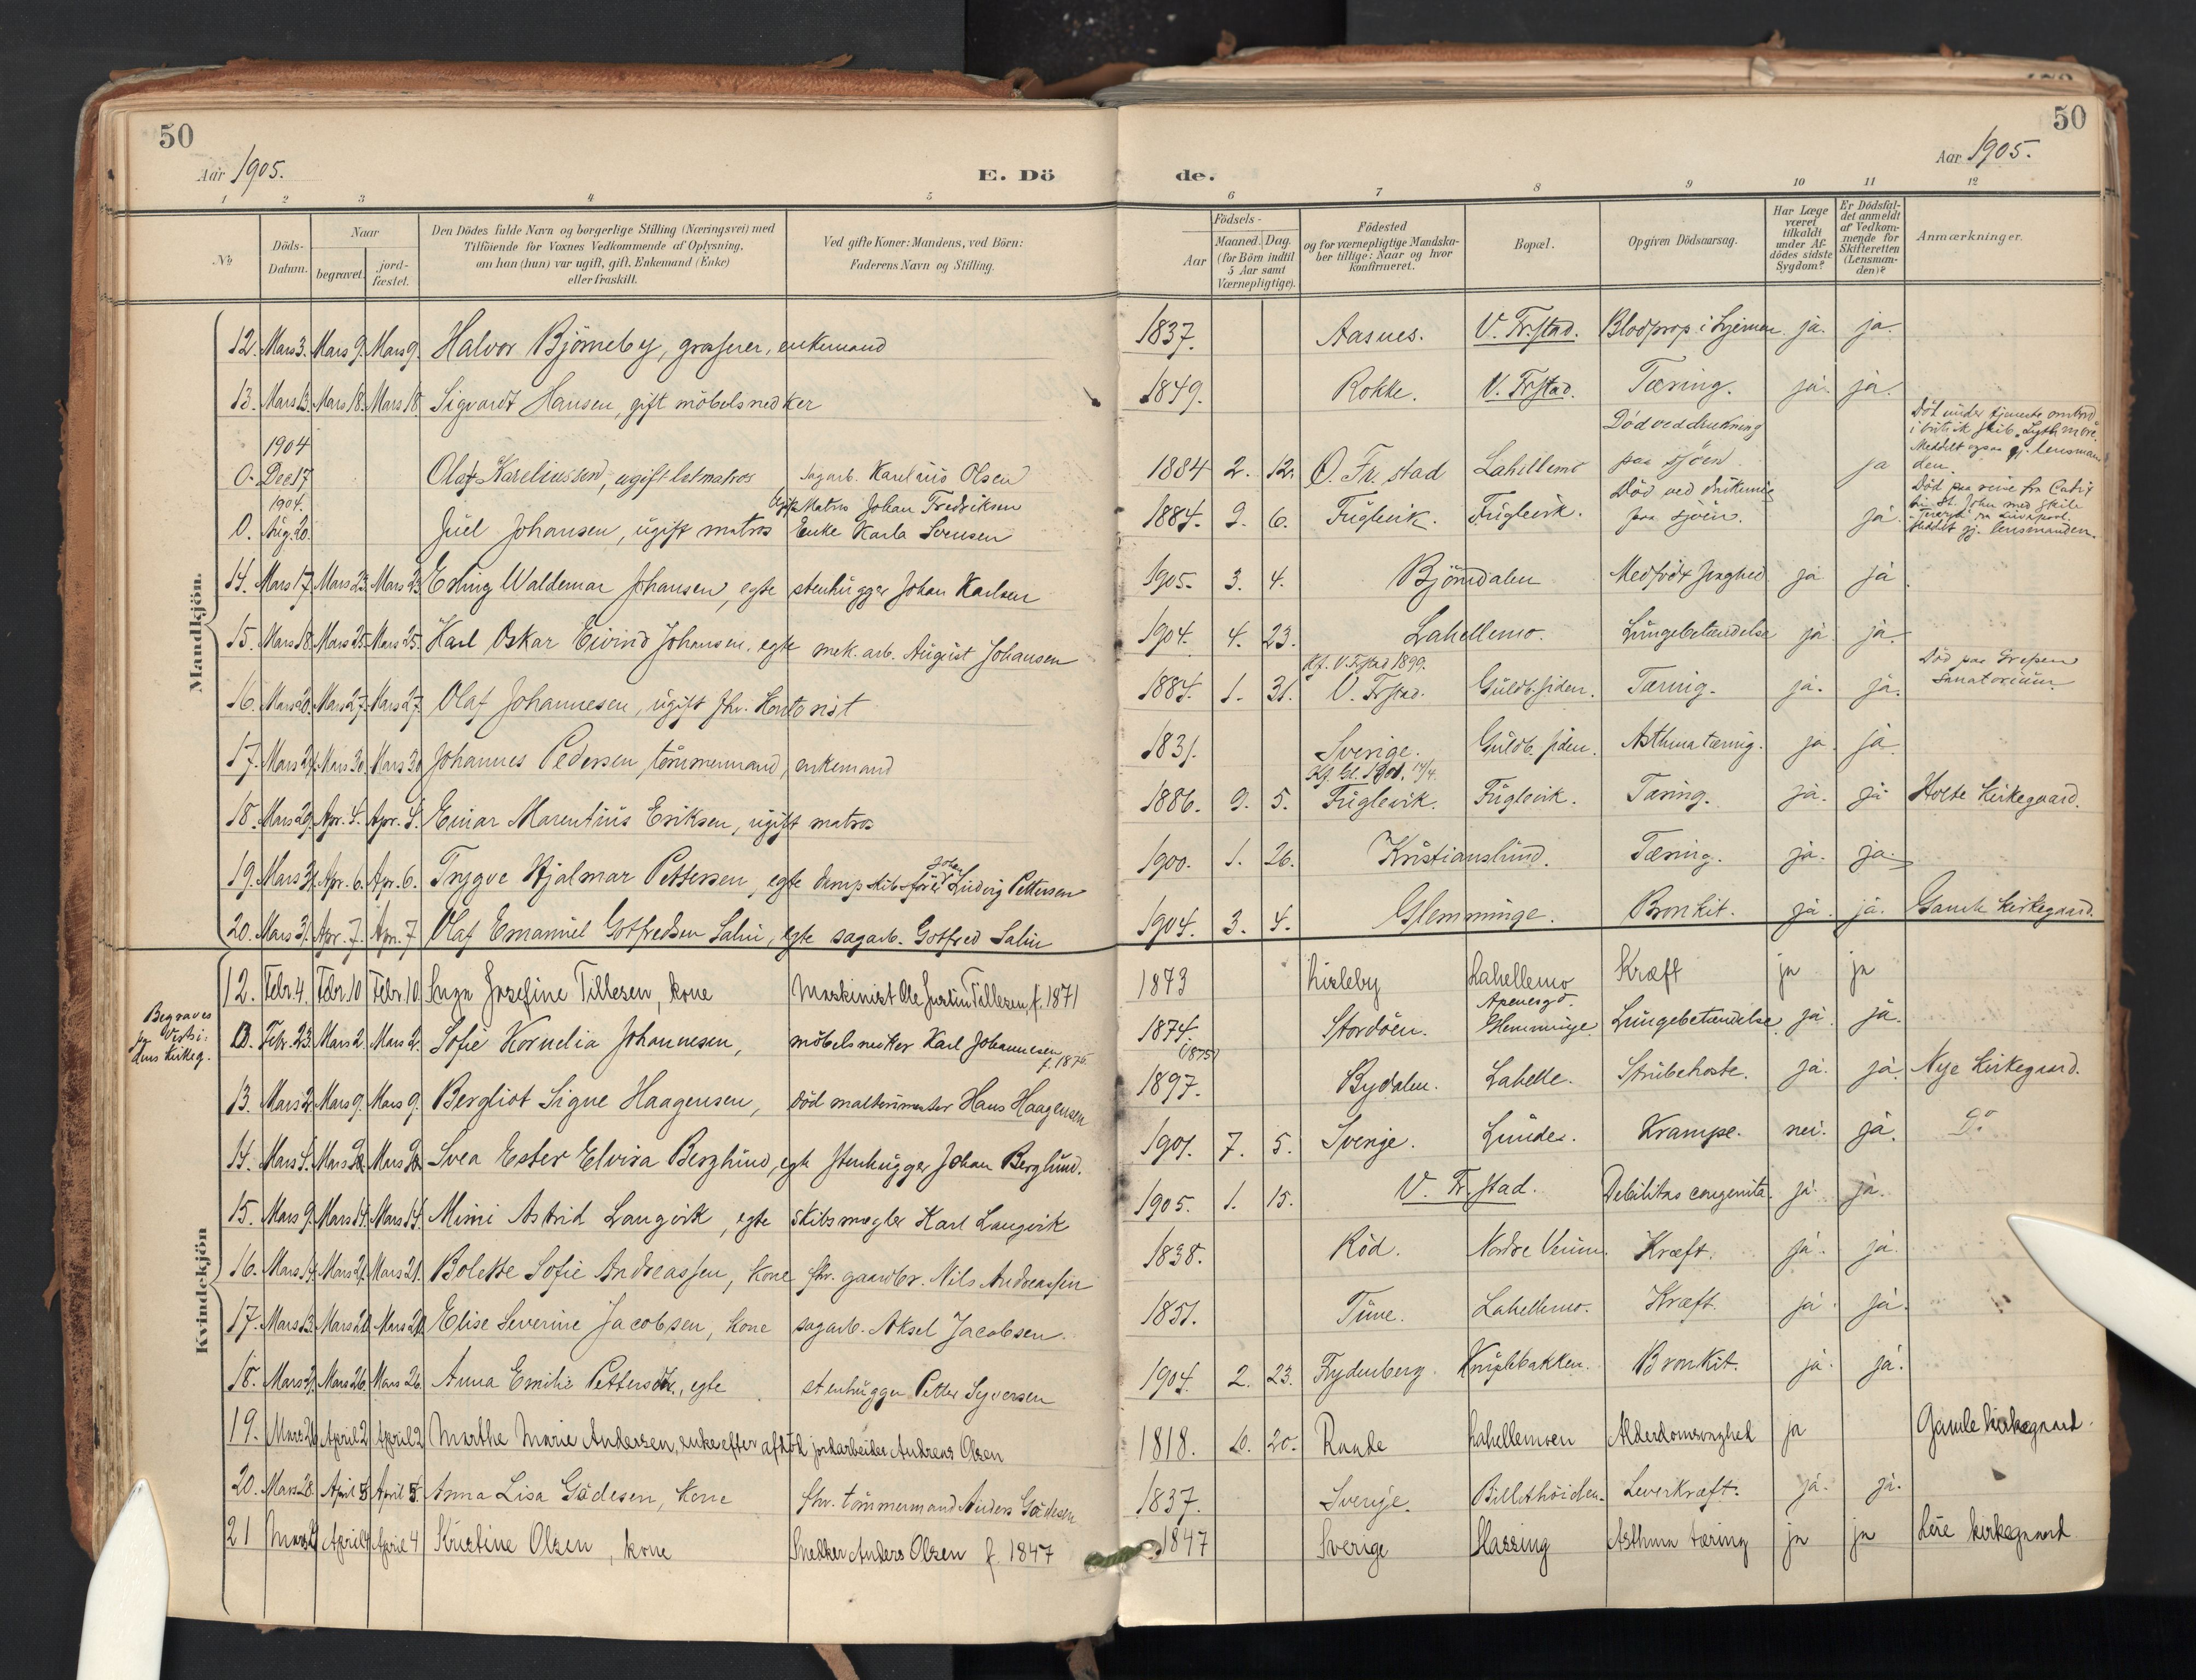 50
50
Aar 1905.
E. Dö
de.
Aar 1905.
1 2 3 4 5 6 7 8 9 10 11 12
No
Döds-Datum.
Naar
begravet. jord-fæstet.
Den Dödes fulde Navn og borgerlige Stilling (Næringsvei) med
Tilföiende for Voxnes Vedkommende af Oplysning,
om han (hun) var ugift, gift, Enkemand (Enke)
eller fraskilt.
Ved gifte Koner: Mandens, ved Börn:
Faderens Navn og Stilling.
Födsels-
Aar
Maaned. Dag.
(for Börn indtil
5 Aar samt
Værnepligtige).
Födested
og for værnepligtige Mandska-
ber tillige: Naar og hvor
konfirmeret.
Bopæl.
Opgiven Dödsaarsag.
Har Læge
været
tilkaldt
under Af-
dödes sidste
Sygdom?
Er Dödsfal-
det anmeldt
af Vedkom-
mende for
Skifteretten
(Lensman-
den)?
Anmærkninger.
Mandkjön.
12. Mars 3. Mars 9. Mars 9. Halvor Björneby, grosserer, enkemand 1837. Aasnes. V. Fr.stad. Blodprop i hjernen ja. ja.
13. Mars 13. Mars 18. Mars 18 Sigvardt Hansen, gift möbelsnedker 1849. Rokke. V. Frstad. Tæring. ja. ja.
1904
0. Dec 17 Olaf Kareliussen, ugift letmatros sagarb. Karelius Olsen 1884 2. 12. O. Fr. stad Lahellemo Död ved drukning paa sjöen ja Död under tjeneste ombord
i britisk skib
Meddelt ogsaa gj. lensman
den.
1904.
0. Aug. 20. Juel Johansen, ugift matros Matros Johan Fredriksen
Enke Karla Svensen 1884. 9. 6. Fuglevik. Fuglevik. Död ved drukning paa sjöen. ja. Död paa reise fra Cadix
til St. John med skib
Meddelt gj. lensmanden.
14. Mars 17. Mars 23. Mars 23 Erling Waldemar Johansen, egte stenhugger Johan Karlsen 1905. 3. 4. Björndalen Medfödt svaghed ja ja
15. Mars 18. Mars 25. Mars 25. Karl Oskar Eivind Johansen, egte mek. arb. August Johansen 1904. 4. 23. Lahellemo. Lungebetændelse ja. ja.
16. Mars 20. Mars 27. Mars 27. Olaf Johannesen, ugift fhv. Kontorist 1884. 1. 31. Kf. V. Frstad 1899.
V. Frstad. Guldb. siden. Tæring. ja. ja. Död paa Grefsen
Sanatorium.
17. Mars 24. Mars 30. Mars 30 Johannes Pedersen, tömmermand, enkemand 1831. Sverige. Guldb. siden. Asthma tæring. ja. ja
18. Mars 29. Apr. 4. Apr. 4. Einar Marentius Eriksen, ugift matros 1886. 9. 5. Kf. Gl. 1901. 14/4.
Fuglevik. Fuglevik. Tæring. ja. ja Holte Kirkegaard.
19. Mars 31. Apr. 6. Apr. 6. Trygve Hjalmar Pettersen, egte dampskibsförer Johan Ludvig Pettersen 1900. 1. 26. Kristianslund. Tæring. ja. ja.
20. Mars 31. Apr. 7. Apr. 7 Olaf Emanuel Gotfredsen Salin, egte sagarb. Gotfred Salin 1904. 3. 4. Glemminge. Bronkit. ja. ja. Gamle Kirkegaard.
Kvindekjön
12. Febr. 4. Febr. 10 Febr. 10 Inga Josefine Tillesen, kone Maskinist Ole Justin Tillesen, f. 1871 1873 Lisleby Lahellemo Kræft ja ja
Begraves
paa Vestsi-
dens Kirkeg.
0. Febr. 23. Mars 2. Mars 2. Sofie Kornelia Johannesen, möbelsnedker Karl Johannesen
f. 1875. 1874.
(1875) Stordöen. Apenesgd.
Glemminge Lungebetændelse ja. ja.
13. Mars 2. Mars 9. Mars 9. Bergliot Signe Haagensen, död maltermester Hans Haagensen 1897. Bydalen. Lahelle. Strubehoste. ja. ja. Nye Kirkegaard.
14. Mars 4. Mars Mars Svea Ester Elvira Berglund, egte stenhugger Johan Berglund. 1901. 7. 5. Sverige. Lunde. Krampe. nei. ja. Do
15. Mars 9. Mars 14. Mars 14. Mimi Astrid Langvik, egte skibsmægler Karl Langvik 1905. 1. 15. V. Fr.stad. Debilitas congenita. ja. ja.
16. Mars 14. Mars 21. Mars 21. Bolette Sofie Andreassen, kone fhv. gaardbr. Nils Andreassen 1838. Röd. Nordre Veum. Kræft. ja. ja.
17. Mars 13. Mars 20. Mars 20. Elise Severine Jacobsen, kone sagarb. Aksel Jacobsen. 1851. Tune. Lahellemo. Kræft. ja. ja.
18. Mars 21. Mars 26. Mars 26. Anna Emilie Petters, egte stenhugger Petter Syversen 1904. 2. 23. Frydenberg. Kniplebakken. Bronkit. ja. ja.
19. Mars 26 April 2 April 2 Marthe Marie Andersen, enke efter afdöd jordarbeider Andreas Olsen 1818. 10. 20. Raade Lahellemoen Alderdomssvaghed ja Gamle kirkegaard.
20. Mars 28. April 5 April 5. Anna Lisa Gädesen, kone fhv. tömmermand Anders Gädesen 1837. Sverige. Billethöiden. Leverkræft. ja. ja.
21 Mars April 4 April 4 Kristine Olsen, kone Snedker Anders Olsen f. 1847 1847 Sverige Hassing Asthma tæring ja ja Leie kirkegaard